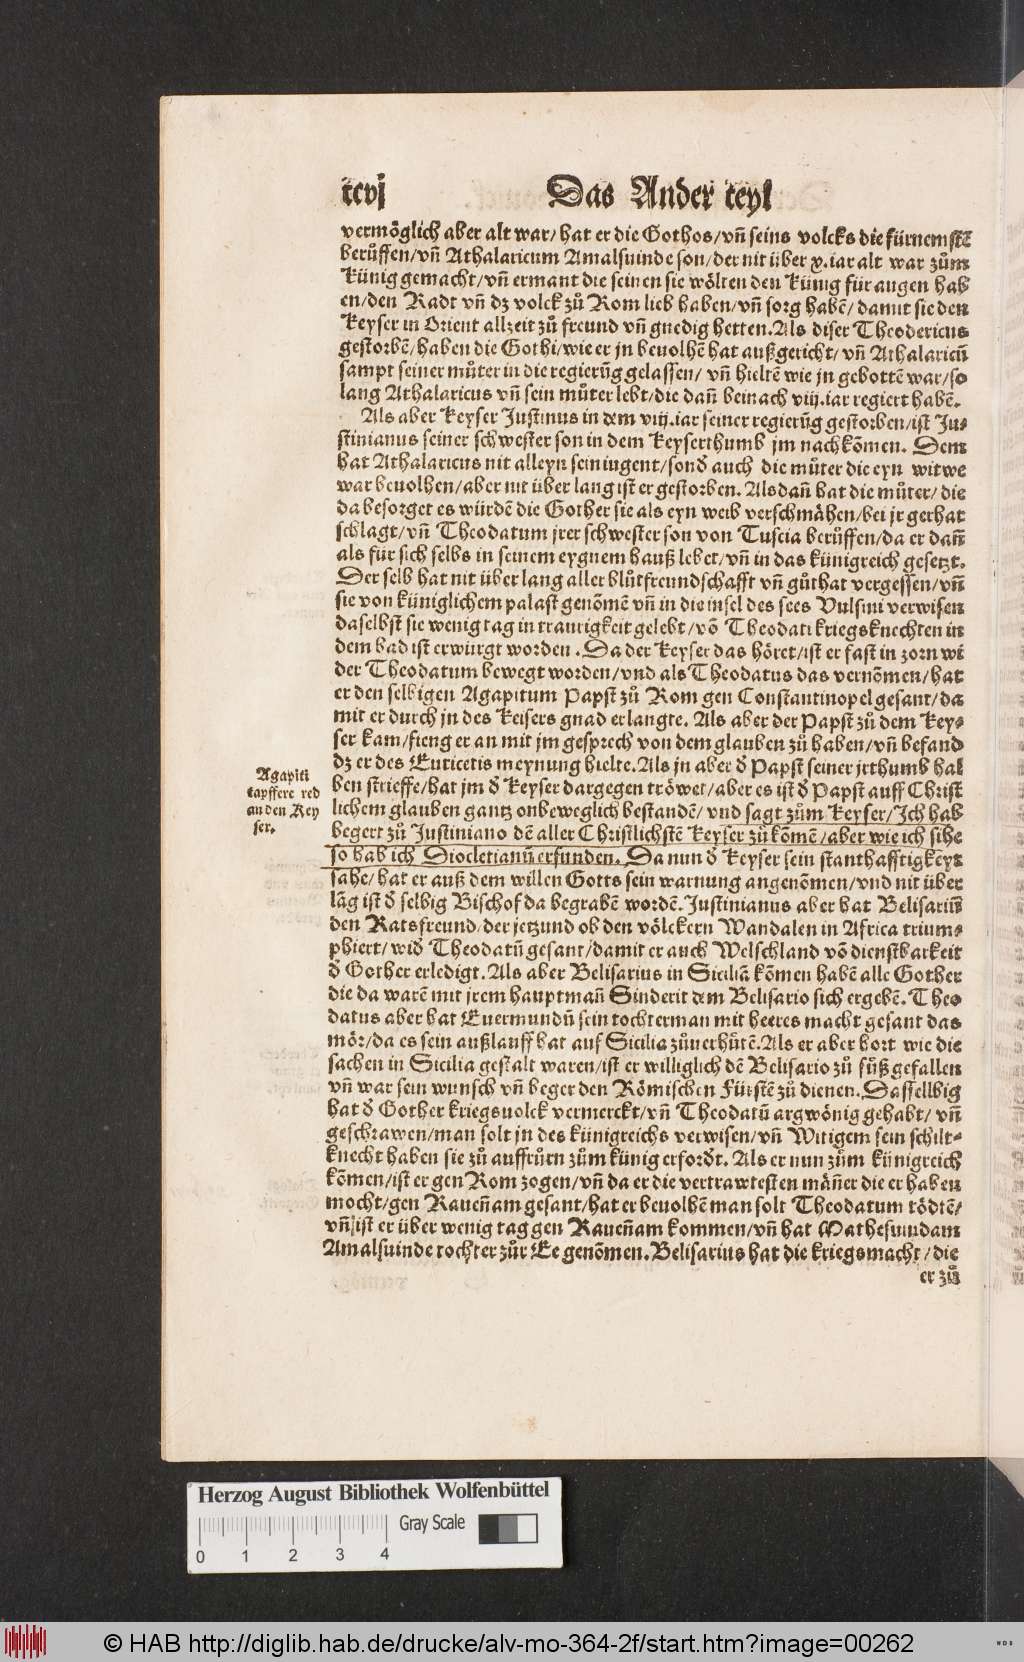 tcvj Das Ander teyl
vermöglich aber alt war/ hat er die Gothos/vn̄ seins volcks die fürnemstē
berůffen/vn̄ Athalaricum Amalsuinde son/der nit über x.iar alt war zům
Künig gemacht/vn̄ ermant die seinen sie wölten den Künig für augen hab
en/den Radt vn̄ dz volck zů Rom lieb haben/vn̄ sorg habē/ damit sie den
Keyser in Orient allzeit zů freund vn̄ gnedig hetten. Als diser Theodericus
gestorbē/haben die Gothi/wie er jn beuolhē hat außgericht/ vn̄ Athalaricū
sampt seiner můter in die regierūg gelassen/ vn̄ hieltē wie jn gebottē war/so
lang Athalaricus vn̄ sein můter lebt/die dan̄ beinach viij.iar regiert habē.
Als aber Keyser Justinus in dem viij.iar seiner regierūg gestorben/ist Ju-
stinianus seiner schwester son in dem Keyserthumb jm nachkōmen. Dem
hat Athalaricus nit alleyn sein iugent/sond̄ auch die můter die eyn witwe
war beuolhen/aber nit über lang ist er gestorben. Als dan̄ hat die můter/ die
da besorget es würden die Gother sie als eyn weib verschmähen/bei jr gerhat
schlagt/vn̄ Theodatum jrer schwester son von Tuscia berůffen/da er dan̄
als für sich selbs in seinem eygnem hauß lebet/vn̄ in das künigreich gesetzt.
Der selb hat nit über lang aller blůtfreundschafft vn̄ gůthat vergessen/vn̄
sie von küniglichem palast genōmē vn̄ in die insel des sees Vulsini verwisen
daselbst sie wenig tag in traurigkeit gelebt/vō Theodati kriegsknechten in
dem bad ist erwürgt worden. Da der Keyser das höret/ist er fast in zorn wi
der Theodatum bewegt worden/vnd als Theodatus das vernōmen/hat
er den selbigen Agapitum Papst zů Rom gen Constantinopel gesant/da
mit er durch jn des Keisers gnad erlangte. Als aber der Papst zů dem Key-
ser kam/fieng er an mit jm gesprech von dem glauben zů haben/vn̄ befand
dz er des Euticetis meynung hielte. Als jn aber d̄ Papst seiner jrthumb hal
ben strieffe/hat jm d̄ Keyser dargegen tröwet/aber es ist d̄ Papst auff Christ
lichem glauben gantz onbeweglich bestandē/ vnd sagt zům Keyser/Ich hab
begert zů Justiniano dē aller Christlichstē Keyser zů kōmē/aber wie ich sihe
so hab ich Diocletianū erfunden. Da nun d̄ Keyser sein stanthafftigkeyt
sahe/ hat er auß dem willen Gotts sein warnung angenōmen/vnd nit über
lāg ist d̄ selbig Bischof da begrabē wordē. Justinianus aber hat Belisariū
den Ratsfreund/der jetzund ob den völckern Wandalen in Africa trium-
phiert/ wid̄ Theodatū gesant/damit er auch Welschland vō dienstbarkeit
d̄ Gother erledigt. Als aber Belisarius in Siciliā kōmen habē alle Gother
die da warē mit jrem hauptman̄ Sinderit dem Belisario sich ergebē. Theo
datus aber hat Euermundū sein tochterman mit heeres macht gesant das
mör/da es sein außlauff hat auf Sicilia zůuerhůtē. Als er aber hort wie die
sachen in Sicilia gestalt waren/ist er williglich dē Belisario zů füß gefallen
vn̄ war sein wunsch vn̄ beger den Römischen Fürstē zů dienen. Dassellbig
hat d̄ Gother kriegsuolck vermerckt/vn̄ Theodatū argwönig gehabt/ vn̄
geschrawen/man solt jn des künigreichs verwisen/vn̄ Witigem sein schilt-
knecht haben sie zů auffrůrn zům künig erford̄t. Als er nun zům künigreich
kōmen/ist er gen Rom zogen/vn̄ da er die vertrawtesten mān̄er die er haben
mocht/gen Rauen̄am gesant/hat er beuolhē man solt Theodatum tödtē/
vn̄ ist er über wenig tag gen Rauen̄am kommen/vn̄ hat Mathesuindam
Amalsuinde tochter zůr Ee genōmen. Belisarius hat die kriegsmacht/die
er zů
Agapiti
tapffere red
an den Key
ser.
Herzog August Bibliothek Wolfenbüttel
Gray Scale
0 1 2 3 4
© HAB http://diglib.hab.de/drucke/alv-mo-364-2f/start.htm?image=00262